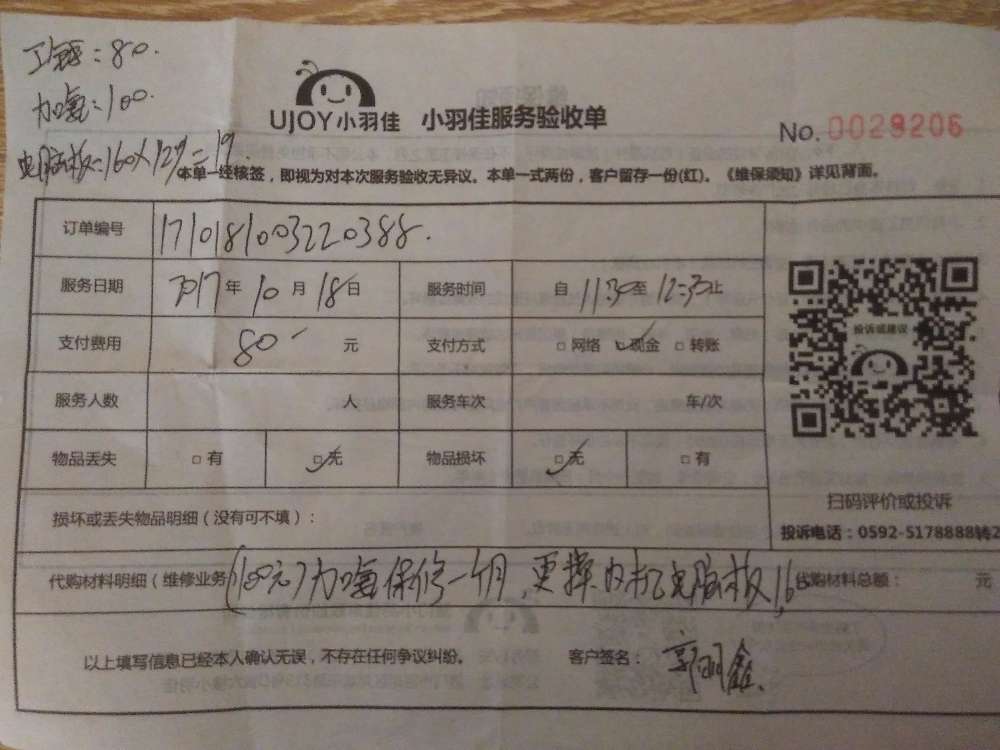 工钱：80.
加氨：100.
电脑板：160×12%=19.
UJOY小羽佳 小羽佳服务验收单
No. 0029206
本单一经核签，即视为对本次服务验收无异议。本单一式两份，客户留存一份(红)。《维保须知》详见背面。
订单编号 1710181003220388.
服务日期 2017年10月18日 服务时间 自 1130至12:30止
支付费用 80 元 支付方式 □网络 ☑现金 □转账
投诉或建议
服务人数 人 服务车次 车/次
物品丢失 □有 ☑无 物品损坏 ☑无 □有
扫码评价或投诉
损坏或丢失物品明细（没有可不填）：
投诉电话：0592-5178888转2
代购材料明细（维修业务 (100元)加氨保修一个月，更换内机电脑板 代购材料总额： 元
以上填写信息已经本人确认无误，不存在任何争议纠纷。 客户签名：